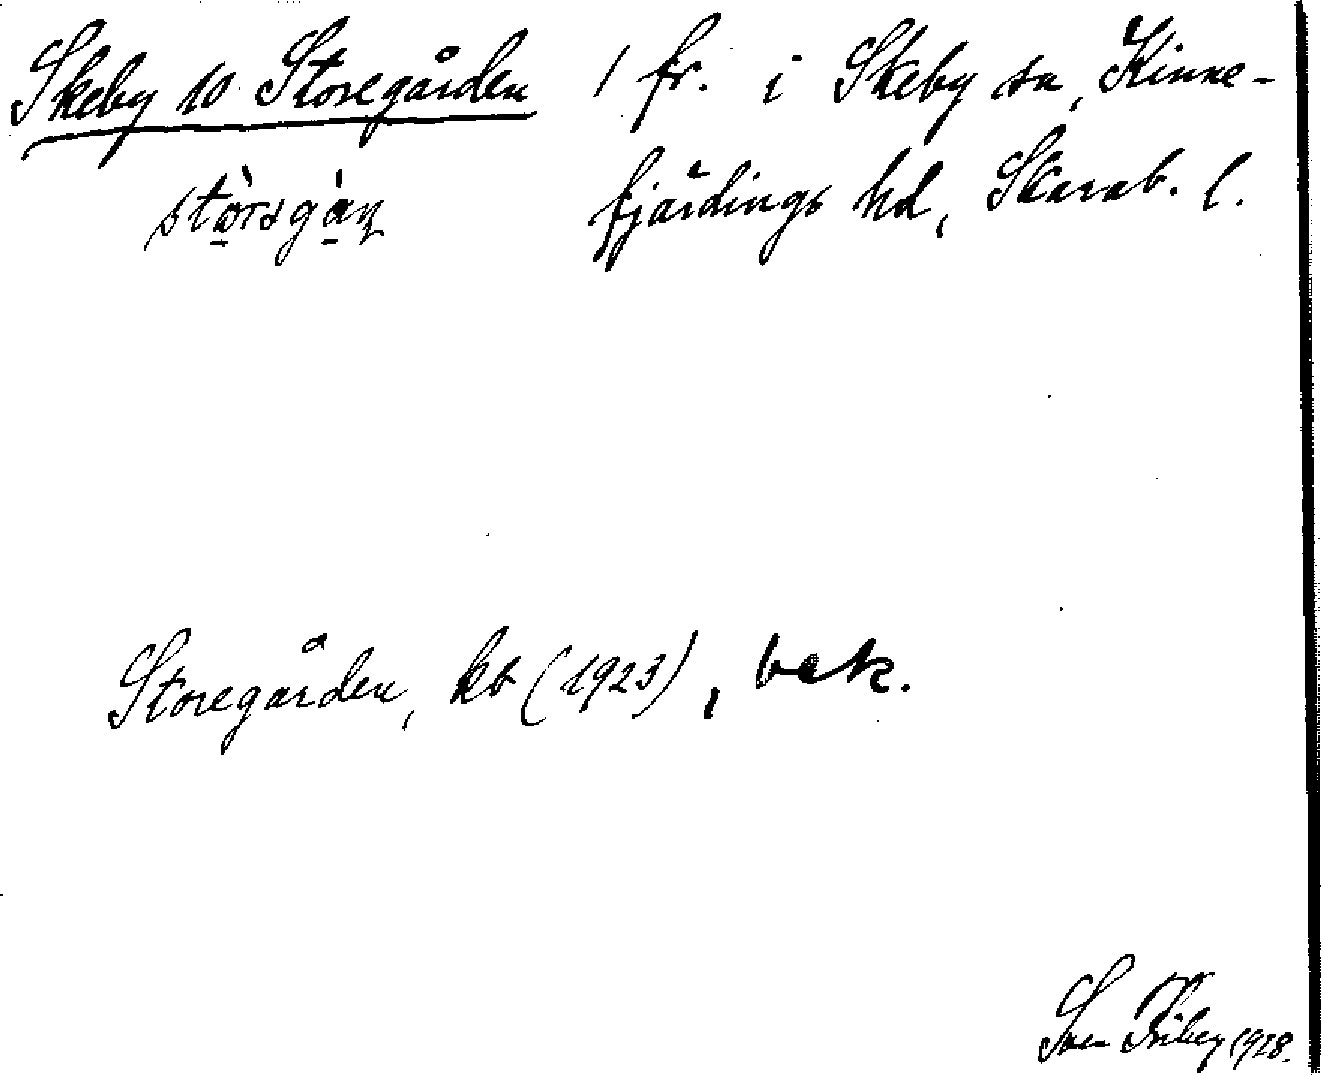 Skeby 10 Storegården 1 fr. i Skeby sn, Kinne-
fjärdings hd, Skarab. l.
Storegården, kb (1923), bek.
Sven Friberg 1928.